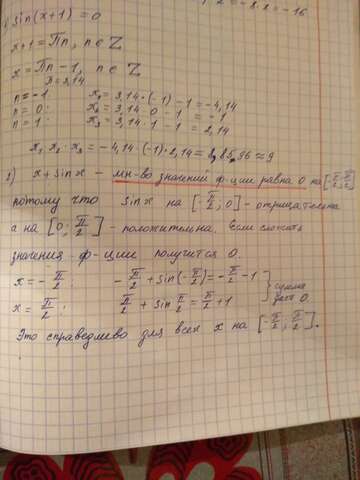 2 = -8,8 = -16
1) sin(x+1) = 0
x+1 = Πn, n∈Z
x = Πn - 1, n∈Z
π = 3,14
n = -1 : x₁ = 3,14·(-1) - 1 = -4,14
n = 0 : x₂ = 3,14·0 - 1 = -1
n = 1 : x₃ = 3,14·1 - 1 = 2,14
x₁ x₂ · x₃ = -4,14·(-1)·2,14 = 8,8596 ≈ 9
2) x + sin x - мн-во значений ф-ции равна 0 на [-π/2; π/2]
потому что sin x на [-π/2; 0] - отрицательна
а на [0; π/2] - положительна. Если сложить
значения ф-ции получится 0.
x = -π/2 : -π/2 + sin(-π/2) = -π/2 - 1 } сумма
x = π/2 : π/2 + sin π/2 = π/2 + 1 } дает 0.
Это справедливо для всех x на [-π/2; π/2].